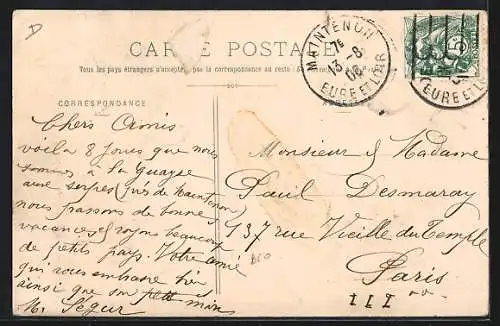 D
CARTE POSTALE
Tous les pays étrangers n'acceptent pas la correspondance au recto
MAINTENON
7E
13 -8
06
EURE ET LOIR
EURE ET LOIR
CORRESPONDANCE
Chers Amis
voila 8 jours que nous
sommes à la
aux serpes (près de Maintenon)
nous passons de bonnes
vacances & voyons beaucoup
de petits pays. Votre ami
qui vous embrasse bien
ainsi que son petit
M. Ségur
Monsieur & Madame
Paul Desmaray
137 rue Vieille du Temple
Paris
III